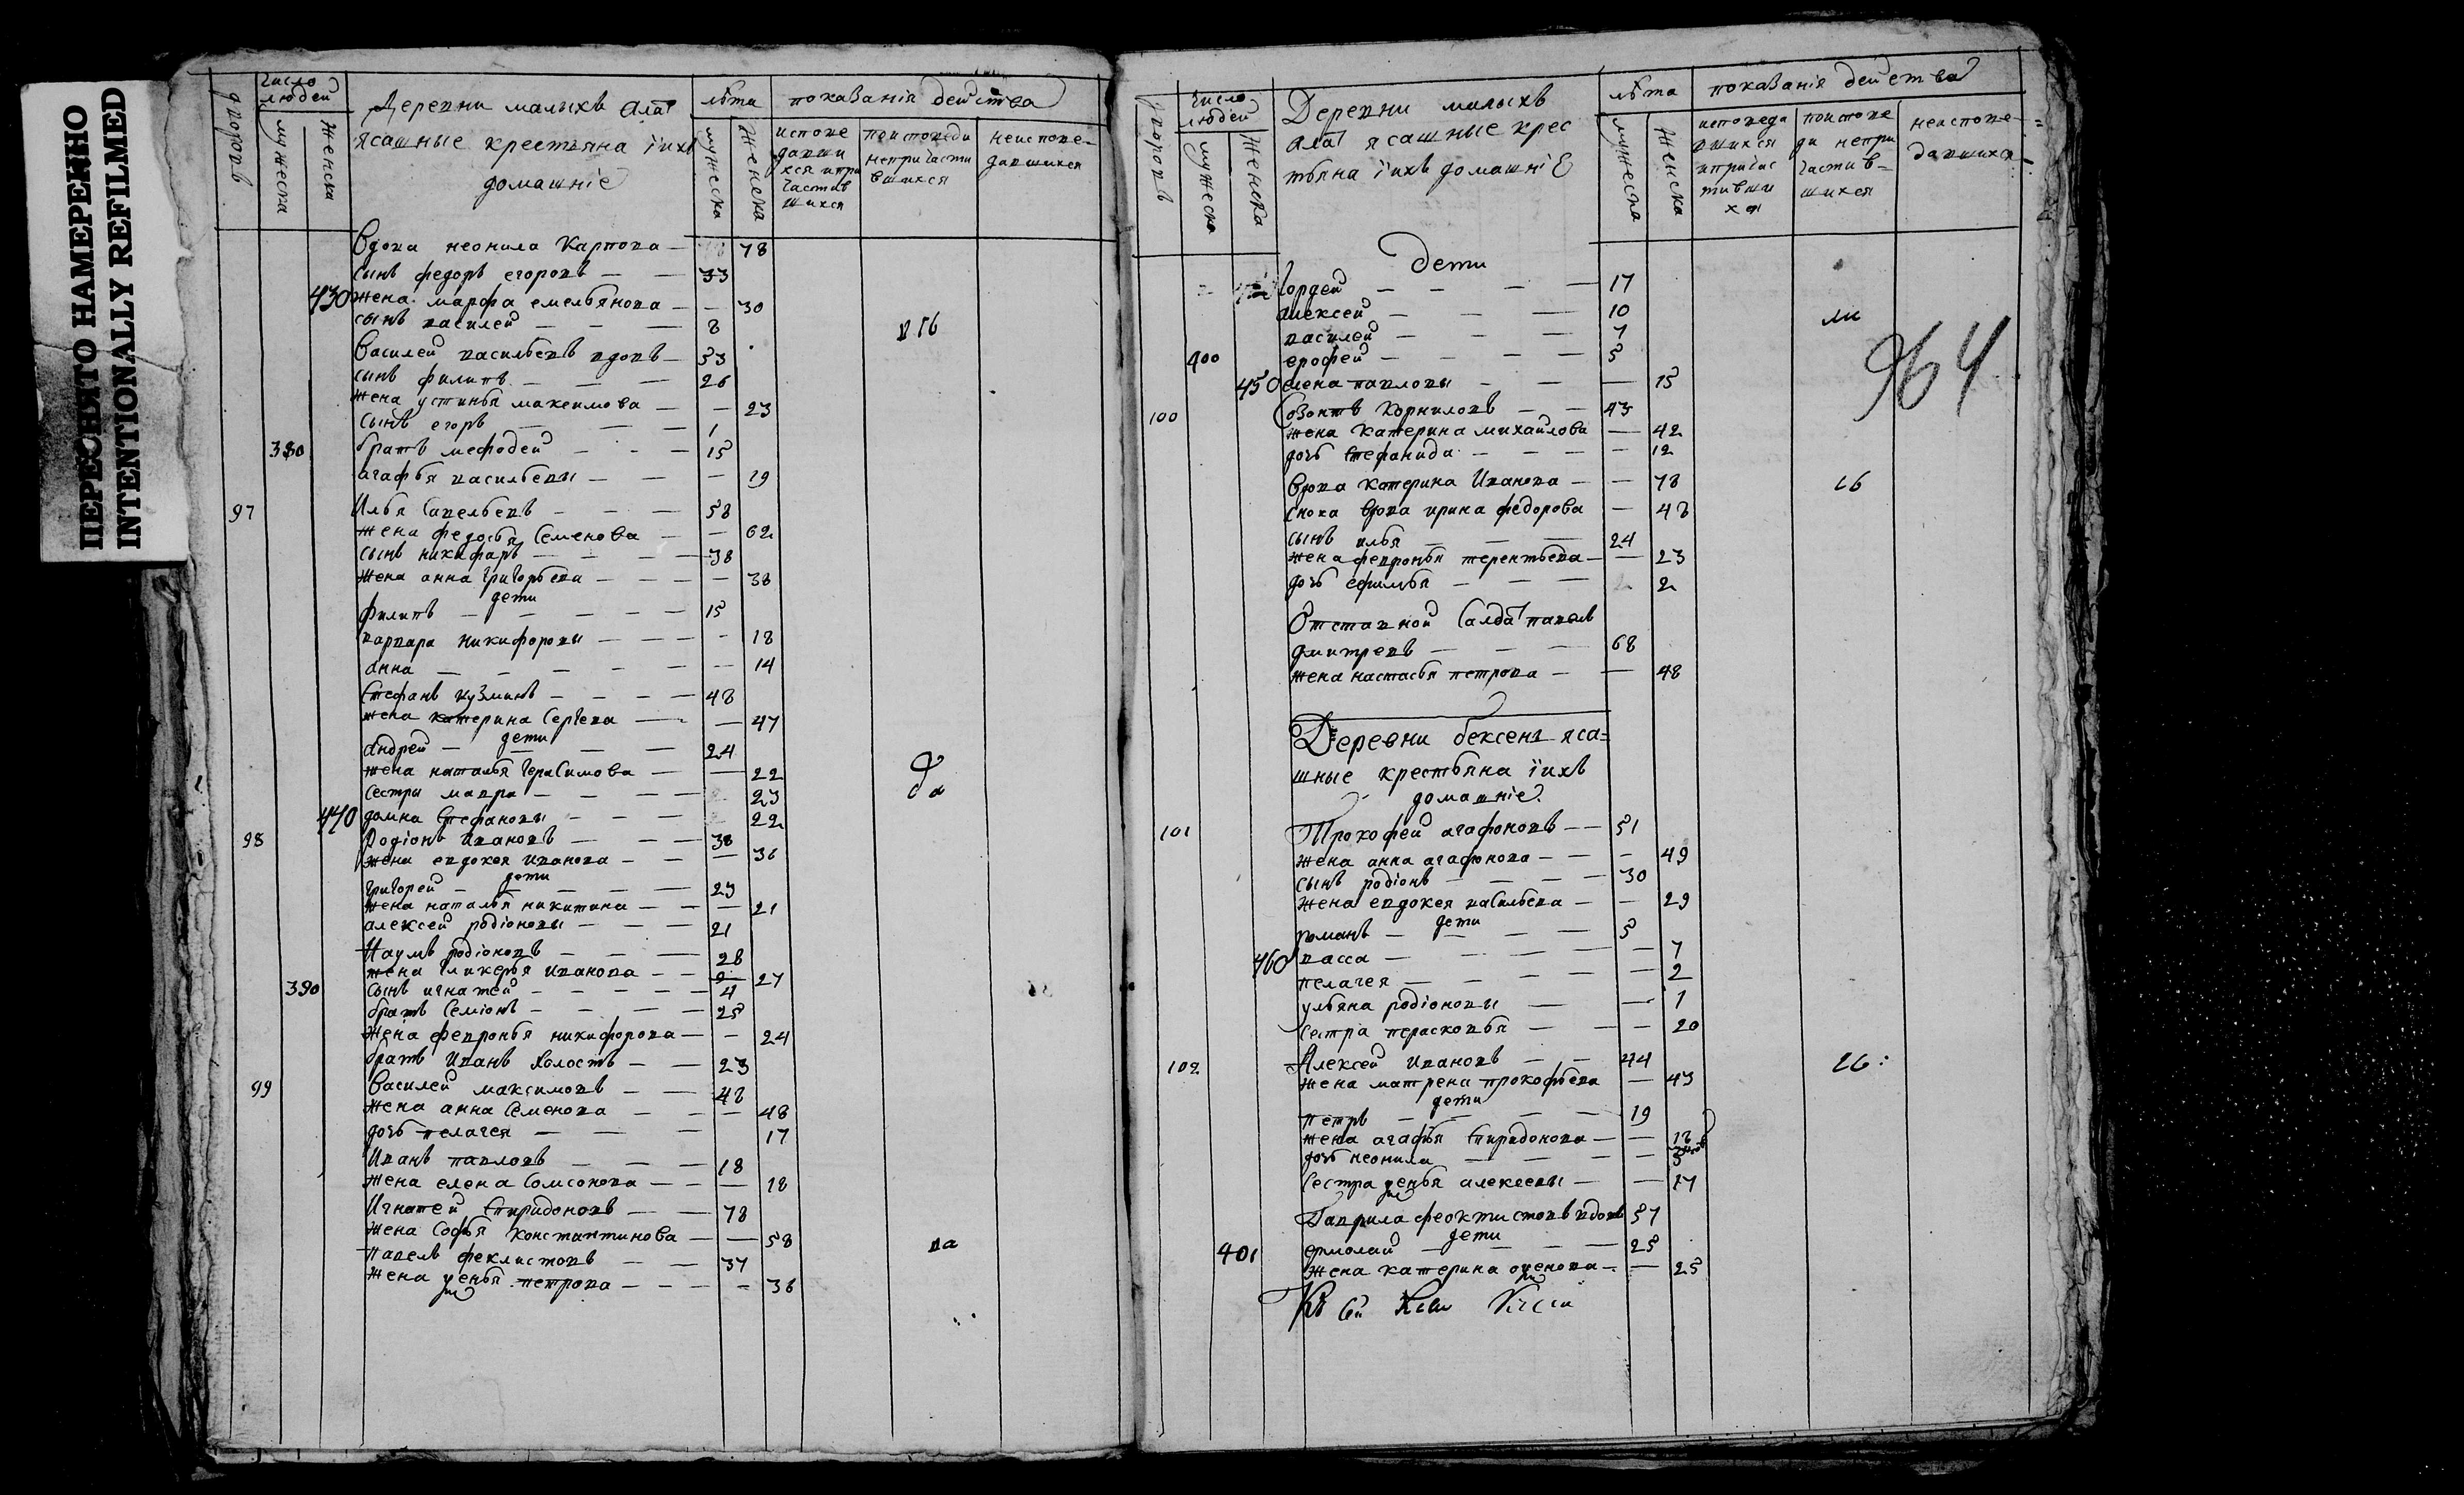 ПЕРЕСНЯТО НАМЕРЕННО
INTENTIONALLY REFILMED
дворовъ
число людей
мужеска
женска
Деревни малыхъ алат
ясашные крестьяна iихъ
домашнiе
лѣта
мужеска
женска
показанiя действа
исповедавшихся ипричастившихся
поисповеди непричастившихся
неисповедавшихся
вдова неонила карпова — 78
сынъ федоръ егоровъ — — 33
430 жена марфа емельянова — — 30
сынъ василей — — — 8
василей васильевъ вдовъ — 53
сынъ филипъ — — — 26
жена устинья максимова — — 23
сынъ егоръ — — — 1
380 братъ мефодей — — — 15
агафья васильевы — — — 19
97 Илья савельевъ — — — 58
жена федосья семенова — — 62
сынъ никифаръ — — — 38
жена анна григорьева — — — 38
дети
филипъ — — — — — 15
варвара никифоровы — — — — 18
анна — — — — — — 14
стефанъ кузминъ — — — — 48
жена катерина сергеева — — — 47
дети
андрей — — — — 24
жена наталья герасимова — — 22
сестры мавра — — — — 23
440 домна стефановы — — — 22
98 Родiонъ ивановъ — — — 38
жена евдокея иванова — — — 36
дети
григорей — — — — — 23
жена наталья никитина — — — 21
алексей родiоновы — — — 21
Наумъ родiоновъ — — — 28
жена гликерья иванова — — 27
390 сынъ игнатей — — — — — 4
братъ семiонъ — — — — 25
жена февронья никифорова — — 24
братъ иванъ холостъ — — 23
99 василей максимовъ — — 48
жена анна семенова — — — 48
дочь пелагея — — — 17
иванъ павловъ — — — 18
жена елена сомсонова — — — 18
игнатей спиридоновъ — — 78
жена софья константинова — — 58
павелъ феклистовъ — — 37
жена ксенья петрова — — — — 36
дворовъ
число людей
мужеска
женска
Деревни малыхъ
алат ясашные крес
тьяна iихъ домашнiе
лѣта
мужеска
женска
показанiя действа
исповедавшихся ипричастившихся
поисповеди непричастившихся
неисповедавшихся
964
дети
гордей — — — — 17
алексей — — — 10
василей — — — 7
400 ерофей — — — — 5
450 елена павловы — — — 15
100 созонтъ корниловъ — — 43
жена катерина михайлова — 42
дочь стефанида — — — — 12
вдова катерина иванова — — 78
сноха вдова ирина федорова — 48
сынъ илья — — — 24
жена февронья терентьева — — 23
дочь ефимья — — — 2
Отставной салдат павелъ
дмитревъ — — — 68
жена настасья петрова — — 48
Деревни бексени яса=
шные крестьяна iихъ
домашнiе
101 Прокофей агафоновъ — — 51
жена анна агафонова — — — 49
сынъ родiонъ — — — — 30
жена евдокея васильева — — 29
дети
романъ — — — — 5
460 васса — — — — — — 7
пелагея — — — — — — 2
ульяна родiоновы — — 1
сестра перасковья — — — 20
102 Алексей ивановъ — — 44
жена матрена прокофьева — 43
дети
петръ — — — — 19
жена агафья спиридонова — — 18
дочь неонила — — — —
сестра ксенья алексеевы — — 17
Гаврила феоктистовъ вдовъ 57
дети
401 ермолай — — — — 25
жена катерина — — 25